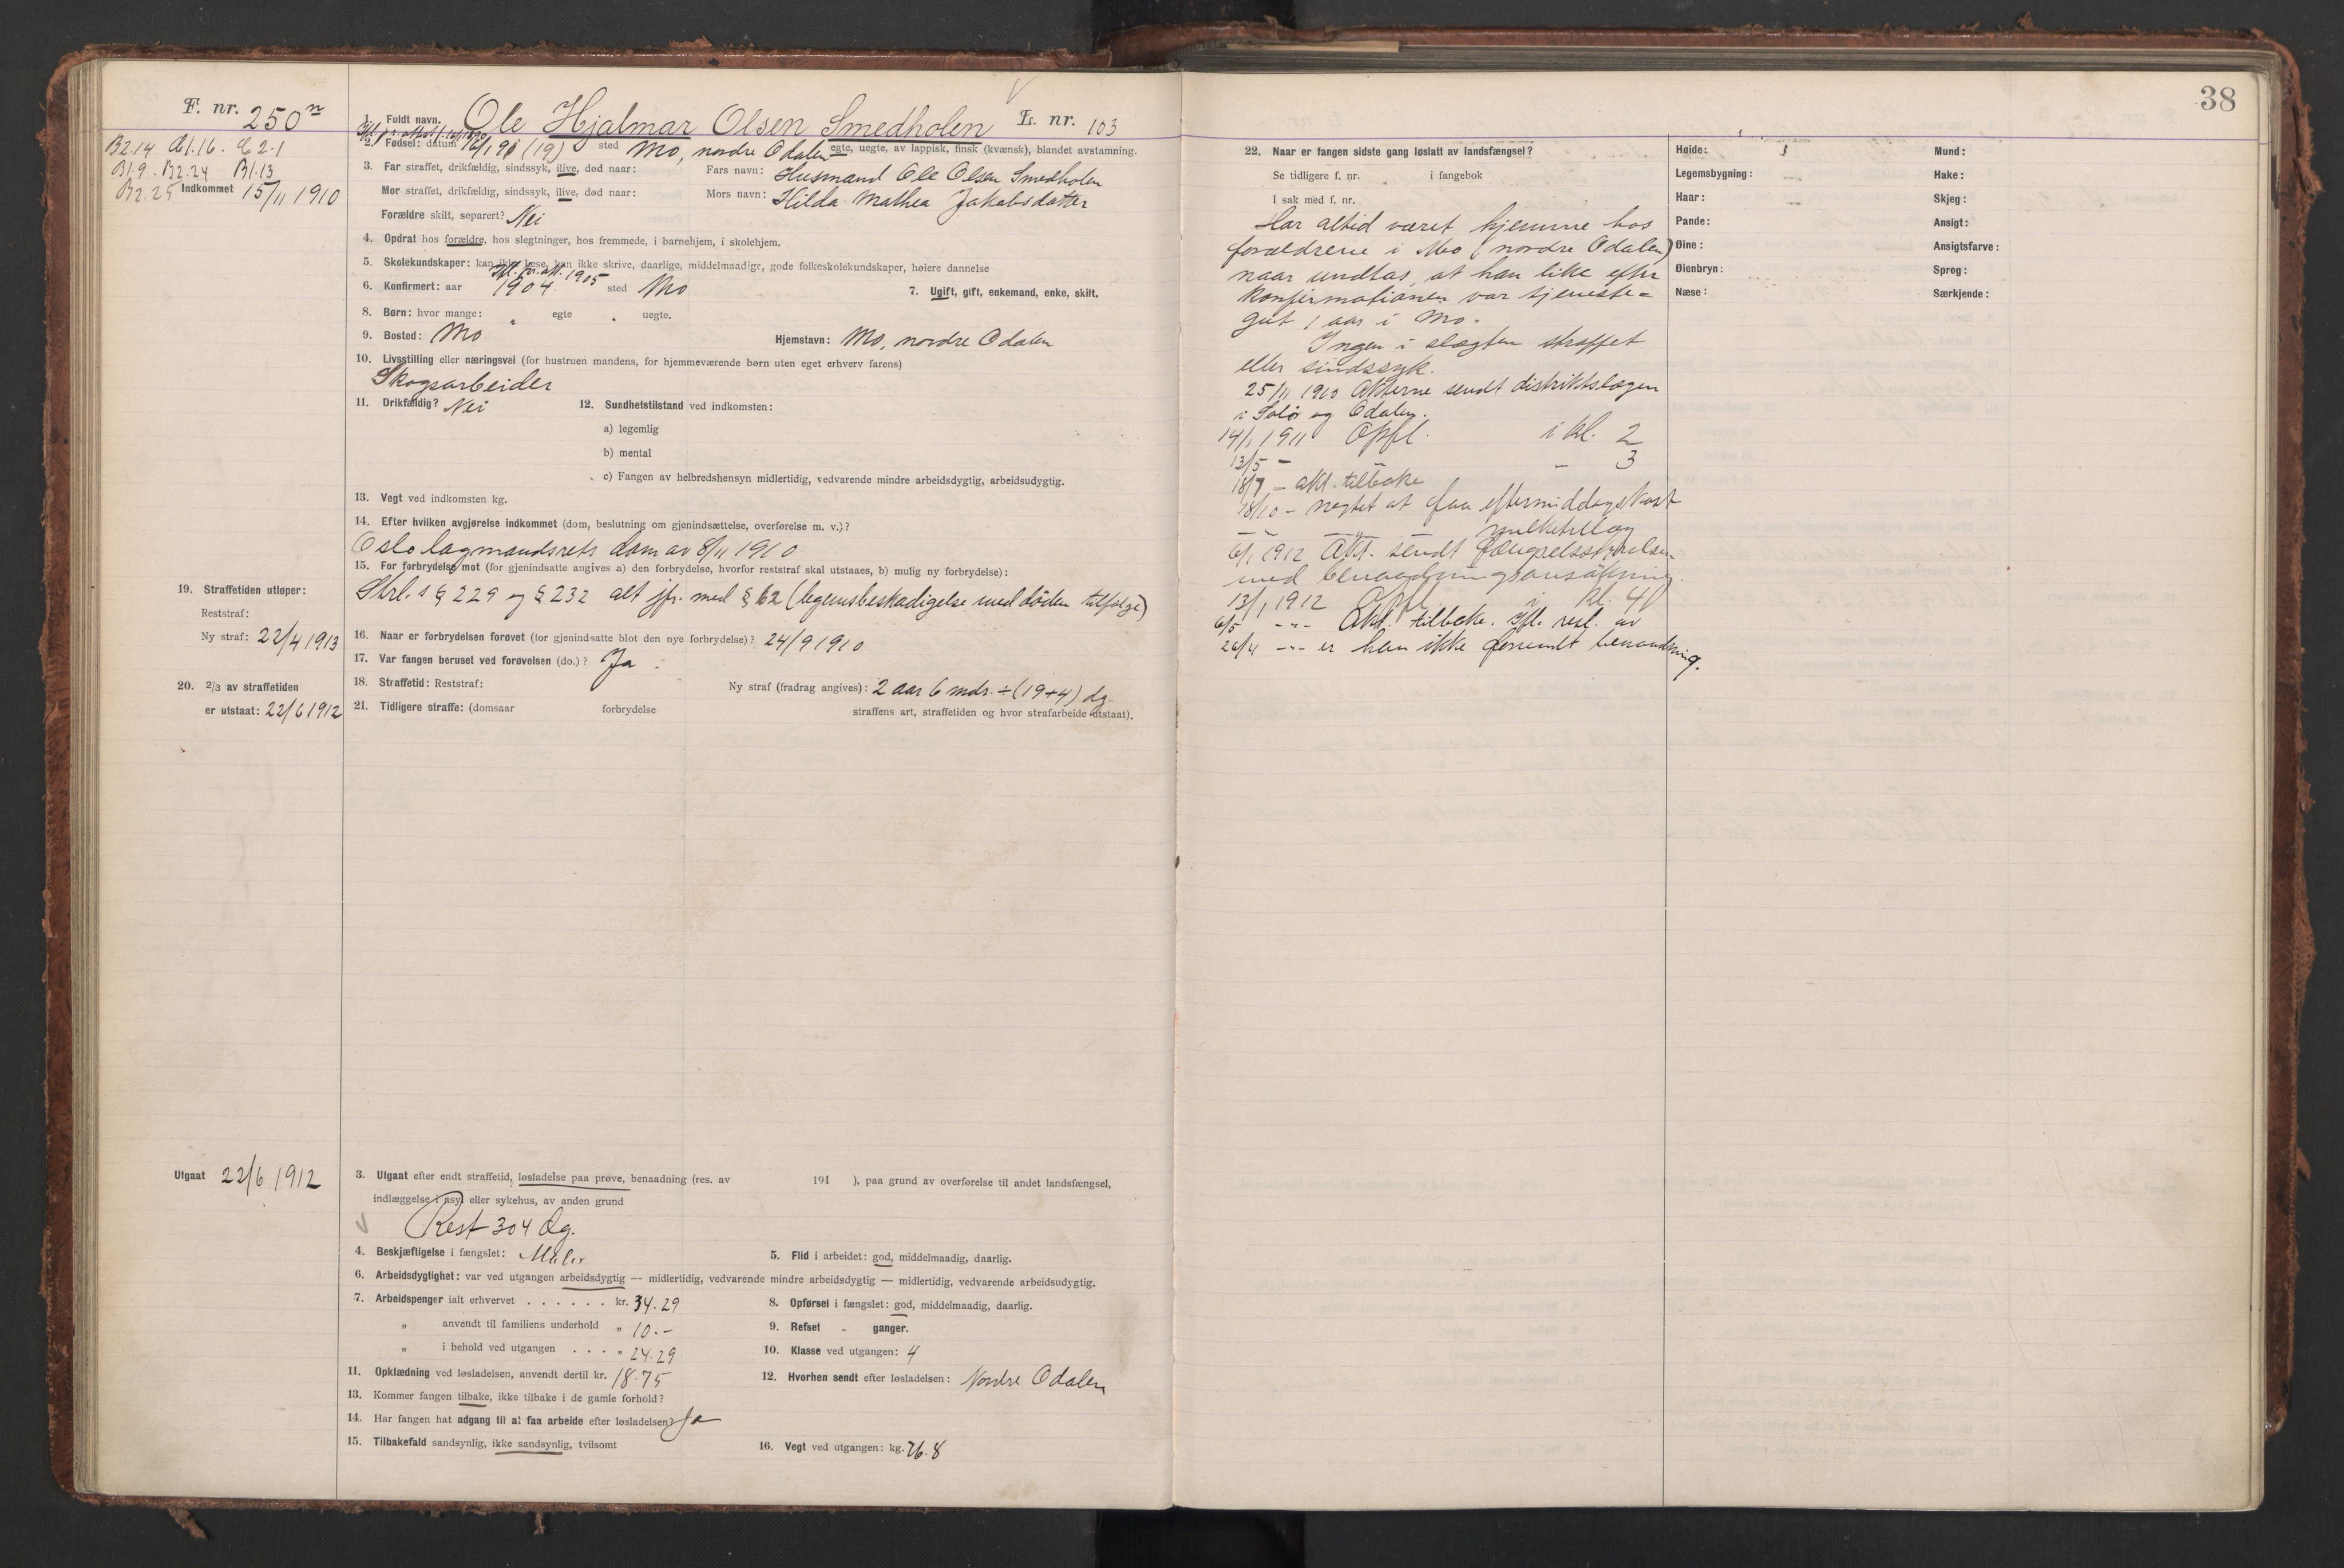 38
F. nr. 250 n
B2.14 A1.16. C2.1
B1.9. B2.24 B1.13
B2.25 Indkommet 15/11 1910
1. Fuldt navn. Ole Hjalmar Olsen Smedholen L. nr. 103
2. Fødsel: datum (19) sted Mo, nordre Odalen egte, uegte, av lappisk, finsk (kvænsk), blandet avstamning.
3. Far straffet, drikfældig, sindssyk, ilive, død naar: Fars navn: Husmand Ole Olsen Smedholen
Mor straffet, drikfældig, sindssyk, ilive, død naar: Mors navn: Hilda Mathea Jakobsdatter
Forældre skilt, separert? Nei
4. Opdrat hos forældre, hos slegtninger, hos fremmede, i barnehjem, i skolehjem.
5. Skolekundskaper: kan ikke læse, kan ikke skrive, daarlige, middelmaadige, gode folkeskolekundskaper, høiere dannelse
Ifl. pr.att. 1905
6. Konfirmert: aar 1904 sted Mo 7. Ugift, gift, enkemand, enke, skilt.
8. Børn: hvor mange: „ egte „ uegte.
9. Bosted: Mo Hjemstavn: Mo, nordre Odalen
10. Livsstilling eller næringsvei (for hustruen mandens, for hjemmeværende børn uten eget erhverv farens)
Skogsarbeider
11. Drikfældig? Nei 12. Sundhetstilstand ved indkomsten:
a) legemlig
b) mental
c) Fangen av helbredshensyn midlertidig, vedvarende mindre arbeidsdygtig, arbeidsudygtig.
13. Vegt ved indkomsten kg.
14. Efter hvilken avgjørelse indkommet (dom, beslutning om gjenindsættelse, overførelse m. v.)?
Oslo lagmandsrets dom av 8/11 1910
15. For forbrydelse mot (for gjenindsatte angives a) den forbrydelse, hvorfor reststraf skal utstaaes, b) mulig ny forbrydelse):
Strl.s § 229 og § 232 alt jfr. med § 62 (legemsbeskadigelse med döden tilfølge)
19. Straffetiden utløper:
Reststraf:
Ny straf: 22/4 1913
16. Naar er forbrydelsen forøvet (for gjenindsatte blot den nye forbrydelse)? 24/9 1910
17. Var fangen beruset ved forøvelsen (do.)? Ja
18. Straffetid: Reststraf: Ny straf (fradrag angives): 2 aar 6 mdr. ÷ (19+4) dg.
20. 2/3 av straffetiden
er utstaat: 22/6 1912
21. Tidligere straffe: (domsaar forbrydelse straffens art, straffetiden og hvor strafarbeide utstaat).
Utgaat 22/6 1912
3. Utgaat efter endt straffetid, løsladelse paa prøve, benaadning (res. av 191 ), paa grund av overførelse til andet landsfængsel,
indlæggelse i asyl eller sykehus, av anden grund
Rest 304 dg.
4. Beskjæftigelse i fængslet: Maler 5. Flid i arbeidet: god, middelmaadig, daarlig.
6. Arbeidsdygtighet: var ved utgangen arbeidsdygtig — midlertidig, vedvarende mindre arbeidsdygtig — midlertidig, vedvarende arbeidsudygtig.
7. Arbeidspenger ialt erhvervet . . . . . . kr. 34.29 8. Opførsel i fængslet: god, middelmaadig, daarlig.
„ anvendt til familiens underhold „ 10.- 9. Refset - ganger.
„ i behold ved utgangen . . . „ 24.29 10. Klasse ved utgangen: 4
11. Opklædning ved løsladelsen, anvendt dertil kr. 18.75 12. Hvorhen sendt efter løsladelsen: Nordre Odalen
13. Kommer fangen tilbake, ikke tilbake i de gamle forhold?
14. Har fangen hat adgang til at faa arbeide efter løsladelsen? Ja
15. Tilbakefald sandsynlig, ikke sandsynlig, tvilsomt 16. Vegt ved utgangen: kg. 76.8
22. Naar er fangen sidste gang løslatt av landsfængsel?
Se tidligere f. nr. i fangebok
I sak med f. nr.
Har altid været hjemme hos
forældrene i Mo (nordre Odalen)
naar undtas, at han like efter
konfirmationen var tjeneste-
gut 1 aar i Mo.
Ingen i slægten straffet
eller sindssyk.
25/11 1910 Akterne sendt distriktslægen
i Solør og Odalen.
14/1 1911 Opfl. i kl. 2
13/5 - „ - 3
18/7 - akt. tilbake
18/10 - negtet at faa eftermiddagskost
6/1 1912 Akt. sendt fængselsstyrelsen
med benaadningsansökning.
13/1 1912 Opfl. i kl. 4
6/5 --- Akt. tilbake. Ifl. resl. av
26/4 --- er han ikke forundt benaadning.
Høide: Mund:
Legemsbygning: Hake:
Haar: Skjeg:
Pande: Ansigt:
Øine: Ansigtsfarve:
Øienbryn: Sprog:
Næse: Særkjende: